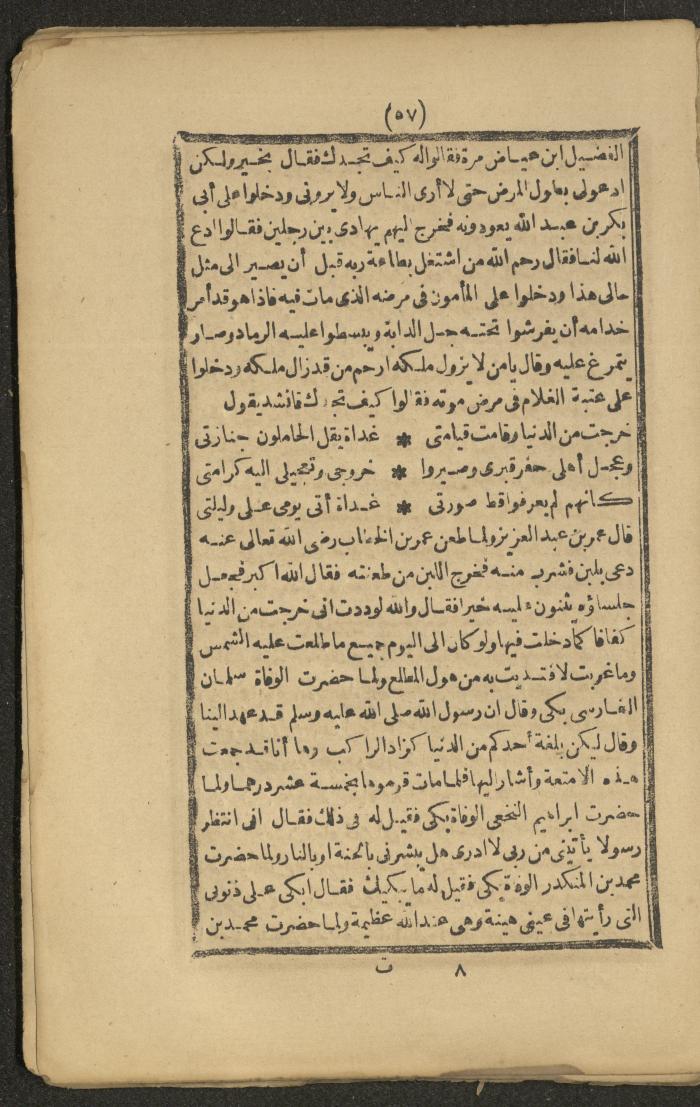 (٥٧)
الفضيل ابن عياض مرة فقالوا له كيف تجدك فقال بخير ولكن
ادعولى بطول المرض حتى لا أرى الناس ولا يرونى ودخلوا على أبى
بكر بن عبد الله يعودونه فخرج اليهم يهادى بين رجلين فقالوا ادع
الله لنا فقال رحم الله من اشتغل بطاعة ربه قبل أن يصير الى مثل
حالى هذا ودخلوا على المأمون فى مرضه الذى مات فيه فاذا هو قد أمر
خدامه أن يفرشوا تحته جل الدابة ويبسطوا عليه الرماد وصار
يتمرغ عليه وقال يا من لا يزول ملكه ارحم من قد زال ملكه ودخلوا
على عتبة الغلام فى مرض موته فقالوا كيف تجدك فانشد يقول
خرجت من الدنيا وقامت قيامتى * غداة يقل الحاملون جنازتى
وعجل أهلى حفر قبرى وصيروا * خروجى وتعجيلى اليه كرامتى
كانهم لم يعرفوا قط صورتى * غداة أتى يومى على وليلتى
قال عمر بن عبد العزيز ولما طعن عمر بن الخطاب رضى الله تعالى عنه
دعى بلبن فشرب منه فخرج اللبن من طعنته فقال الله اكبر فجعل
جلساؤه يثنون عليه خيرا فقال والله لوددت انى خرجت من الدنيا
كفافا كما دخلت فيها ولو كان الى اليوم جميع ما طلعت عليه الشمس
وما غربت لافتديت به من هول المطلع ولما حضرت الوفاة سلمان
الفارسى بكى وقال ان رسول الله صلى الله عليه وسلم قد عهد الينا
وقال ليكن بلغة أحدكم من الدنيا كزاد الراكب وها أنا قد جمعت
هذه الامتعة وأشار اليها فلما مات قوموها بخمسة عشر درهما ولما
حضرت ابراهيم النخعى الوفاة بكى فقيل له فى ذلك فقال انى انتظر
رسولا يأتينى من ربى لا ادرى هل يبشرنى بالجنة او بالنار ولما حضرت
محمد بن المنكدر الوفاة بكى فقيل له ما يبكيك فقال ابكى على ذنوبى
التى رأيتها فى عينى هينة وهى عند الله عظيمة ولما حضرت محمد بن
٨ ت